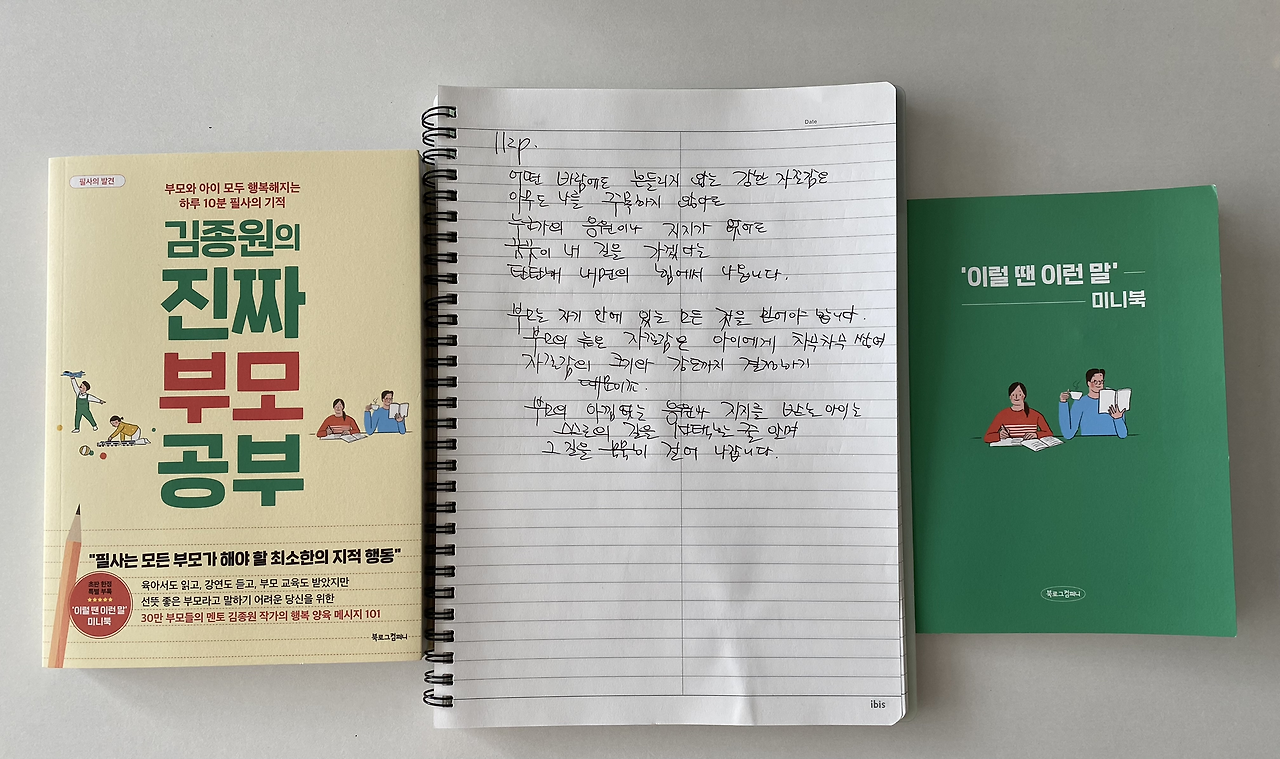 필사의 발견
부모와 아이 모두 행복해지는
하루 10분 필사의 기적
김종원의
진짜
부모
공부
"필사는 모든 부모가 해야 할 최소한의 지적 행동"
초판 한정
특별 부록
'이럴 땐 이런 말'
미니북
육아서도 읽고, 강연도 듣고, 부모 교육도 받았지만
선뜻 좋은 부모라고 말하기 어려운 당신을 위한
30만 부모들의 멘토 김종원 작가의 행복 양육 메시지 101
북로그컴퍼니
Date
112p.
어떤 바람에도 흔들리지 않는 강한 자존감은
아무도 나를 주목하지 않아도
누군가의 응원이나 지지가 없어도
꿋꿋이 내 길을 가겠다는
단단한 내면의 힘에서 나옵니다.
부모는 자기 안에 있는 모든 것을 믿어야 합니다.
부모의 높은 자존감은 아이에게 차곡차곡 쌓여
자존감의 크기와 강도까지 결정하기
때문이죠.
부모의 아낌없는 응원과 지지를 받는 아이는
스스로의 길을 선택하는 줄 알며
그 길을 묵묵히 걸어 나갑니다.
ibis
'이럴 땐 이런 말'
미니북
북로그컴퍼니